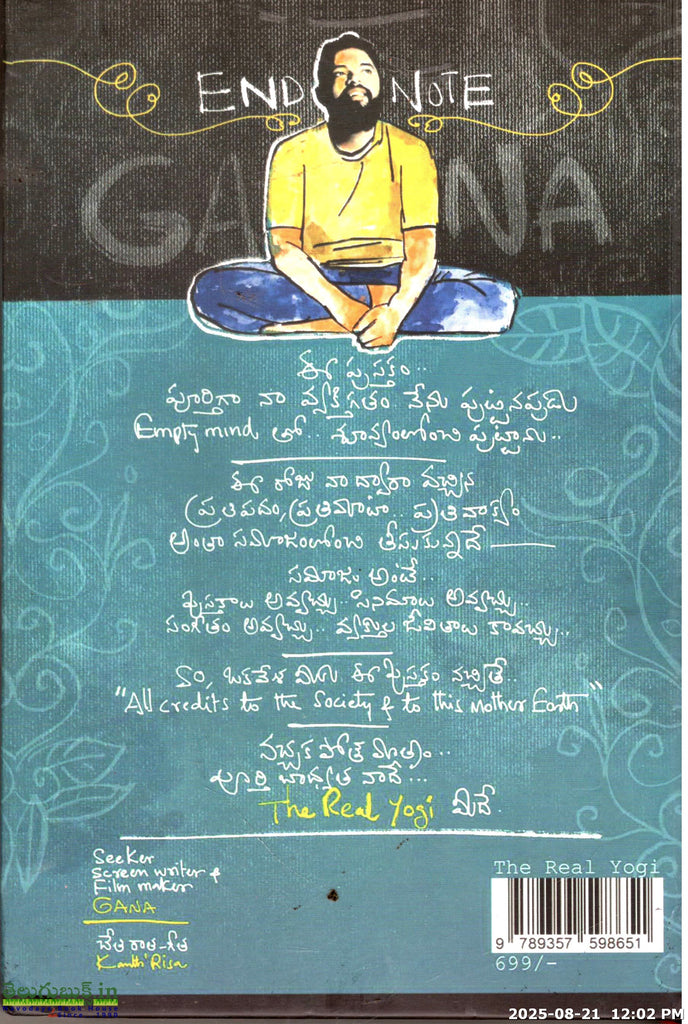 END NOTE
GANA
ఈ పుస్తకం..
పూర్తిగా నా వ్యక్తిగతం. నేను పుట్టినప్పుడు
Empty mind తో.. శూన్యంలోంచి పుట్టాను..
ఈ రోజు నా ద్వారా వచ్చిన
ప్రతిపదం, ప్రతిమాటా.. ప్రతి వాక్యం
అంతా సమాజంలోంచి తీసుకున్నదే
సమాజం అంటే..
పుస్తకాలు అవ్వచ్చు.. సినిమాలు అవ్వచ్చు..
సంగీతం అవ్వచ్చు.. వ్యక్తుల జీవితాలు కావచ్చు..
సో, ఒకవేళ మీకు ఈ పుస్తకం నచ్చితే..
"All credits to the Society & to this Mother Earth"
నచ్చక పోతే మాత్రం..
పూర్తి బాధ్యత నాదే...
The Real Yogi మీదే.
Seeker
Screen writer &
Film maker
GANA
చేతి రాత-గీత
Kanthi Risa
The Real Yogi
9 789357 598651
699/-
తెలుగుబుక్.in
Navodaya Book House
Since.. 1990
2025-08-21 12:02 PM